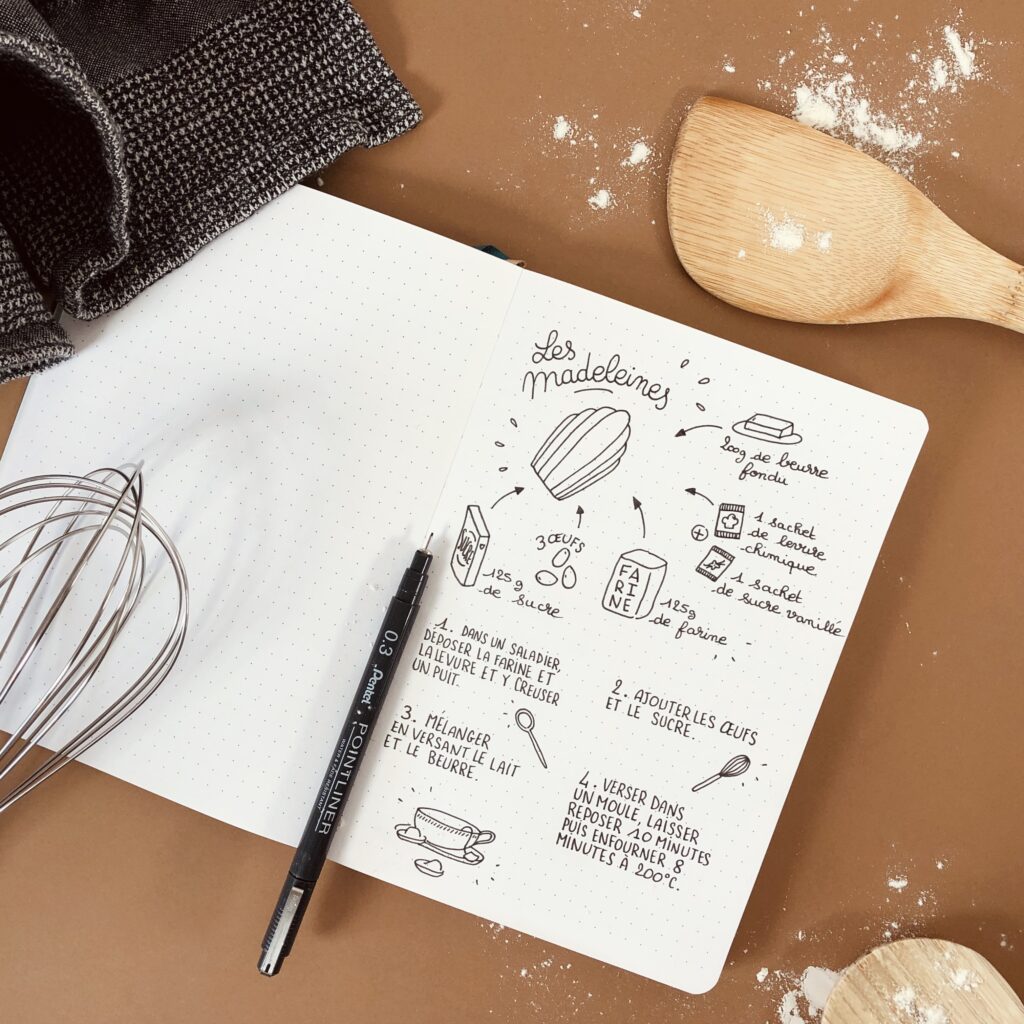 Les
Madeleines
200g de beurre
fondu
1 sachet
de levure
chimique
+
1 sachet
de sucre vanille
SUCRE
125g
de sucre
3 ŒUFS
FA
RINE
125g
de farine
1. DANS UN SALADIER,
DÉPOSER LA FARINE ET
LA LEVURE ET Y CREUSER
UN PUIT.
2. AJOUTER LES ŒUFS
ET LE SUCRE.
3. MÉLANGER
EN VERSANT LE LAIT
ET LE BEURRE.
4. VERSER DANS
UN MOULE, LAISSER
REPOSER 10 MINUTES
PUIS ENFOURNER 8
MINUTES À 200°C.
0.3 Pentel POINTLINER
WATER & FADE RESISTANT